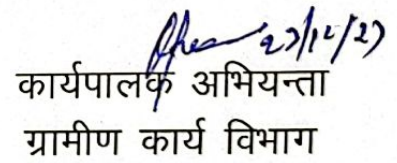 27/12/27
कार्यपालक अभियन्ता
ग्रामीण कार्य विभाग